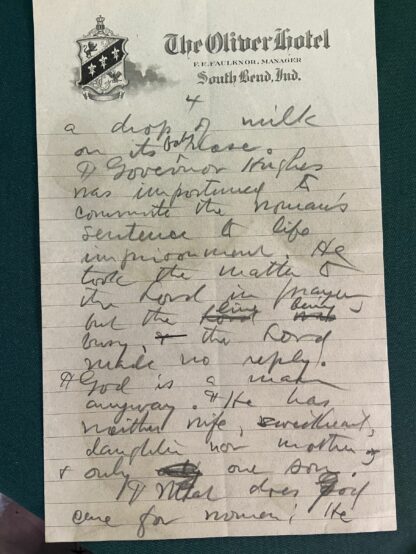 The Oliver Hotel
F. E. FAULKNOR, MANAGER
South Bend, Ind.
4
a drop of milk
on its
¶ Governor Hughes
was importuned to
commute the woman's
sentence to life
imprisonment. He
took the matter to
the Lord in prayer,
but the line being
busy, the Lord
made no reply.
¶ God is a man
anyway. & He has
neither wife, sweetheart,
daughter nor mother,
& only one son.
¶ What does God
care for women; He